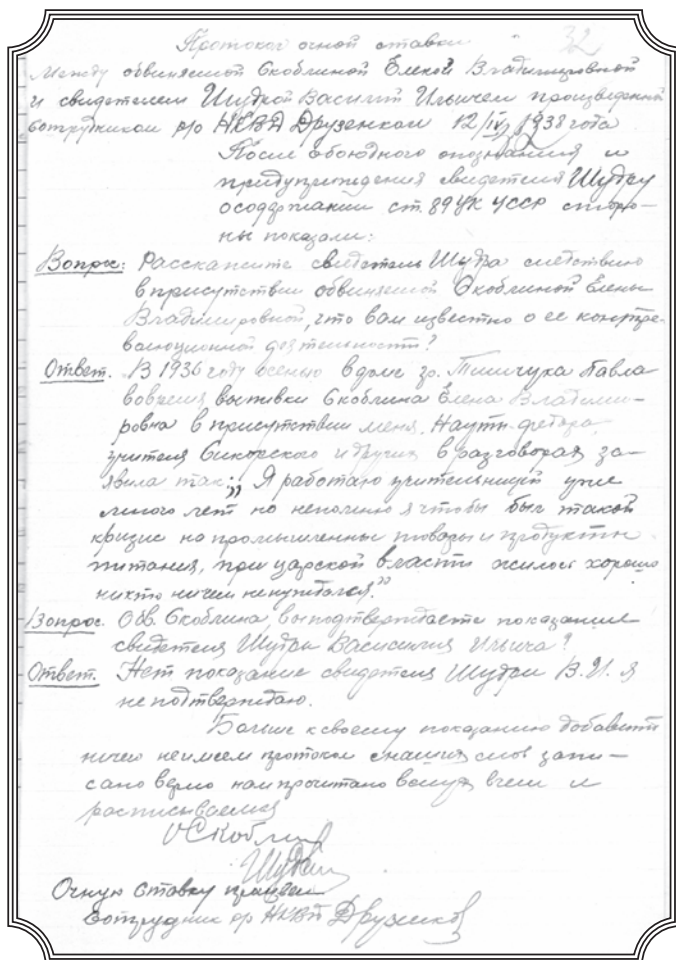 Протокол очной ставки
32
Между обвиняемой Скоблиной Еленой Владимировной
и свидетелем Шудрой Василий Ильичем произведенной
сотрудником р/о НКВД Друзенком 12/IV 1938 года
После обоюдного опознания и
придупреждения свидетеля Шудру
осодержании ст. 89 УК УССР сторо-
ны показали:
Вопрос: Расскажите свидетель Шудра следствию
вприсутствии обвиняемой Скоблиной Елены
Владимировной, что вам известно о ее контрре-
волюционной деятельности?
Ответ. В 1936 году осенью вдоме гр. Тимчука Павла
вовремя выпивки Скоблина Елена Владими-
ровна в присутствии меня, Федора,
учителя Сикорского и других в разговорах за-
явила так: „Я работаю учительницей уже
много лет но непомню я чтобы был такой
кризис на промышленные товары и продукты
питания, при царской власти жилось хорошо
никто ничем ненуждался."
Вопрос. Обв. Скоблина, выподтверждаете показание
свидетеля Шудры Ильича?
Ответ. Нет показание свидетеля Шудры В.И. я
неподтверждаю.
Больше ксвоему показанию добавить
ничего неимеем протокол снаших слов запи-
сано верно нам прочитано вслух вчем и
расписываемся
Скоблин
Шудра
Очную ставку провел
Сотрудник р/о НКВД Друзенков